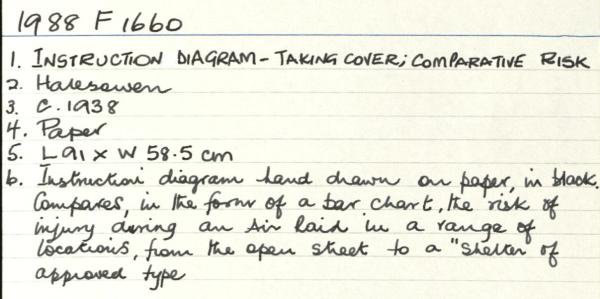 1988 F 1660
1. INSTRUCTION DIAGRAM - TAKING COVER; COMPARATIVE RISK
2. Halesowen
3. C. 1938
4. Paper
5. L 91 x W 58.5 cm
6. Instruction diagram hand drawn on paper, in black.
Compares, in the form of a bar chart, the risk of
injury during an Air Raid in a range of
locations, from the open street to a "Shelter of
approved type